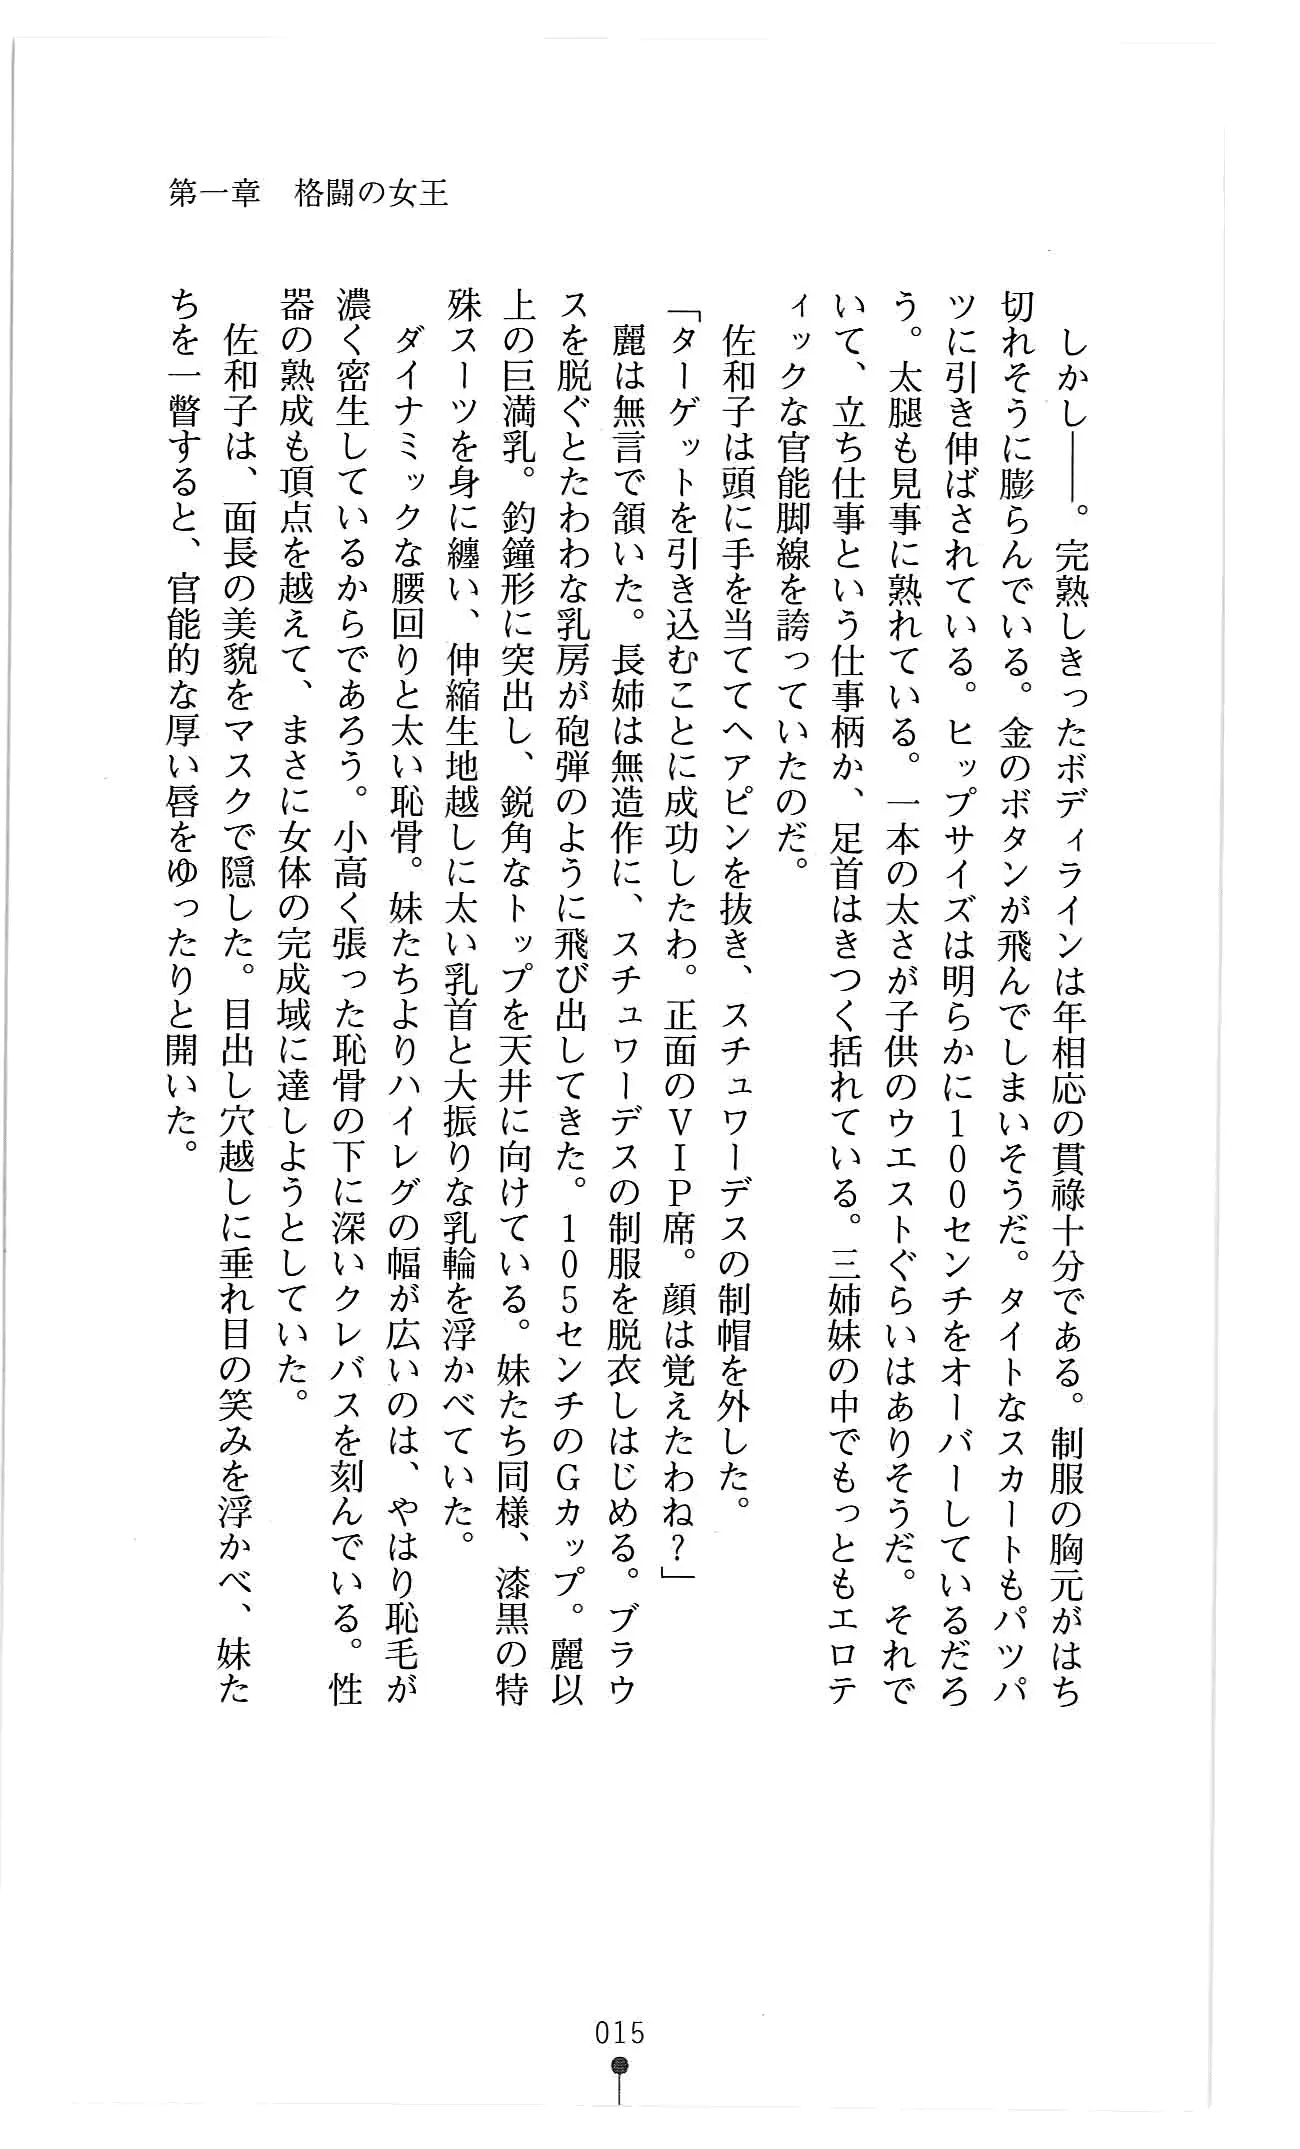 第一章　格闘の女王
　しかし――。完熟しきったボディラインは年相応の貫禄十分である。制服の胸元がはち
切れそうに膨らんでいる。金のボタンが飛んでしまいそうだ。タイトなスカートもパツパ
ツに引き伸ばされている。ヒップサイズは明らかに100センチをオーバーしているだろ
う。太腿も見事に熟れている。一本の太さが子供のウエストぐらいはありそうだ。それで
いて、立ち仕事という仕事柄か、足首はきつく括れている。三姉妹の中でもっともエロテ
ィックな官能脚線を誇っていたのだ。
　佐和子は頭に手を当ててヘアピンを抜き、スチュワーデスの制帽を外した。
「ターゲットを引き込むことに成功したわ。正面のVIP席。顔は覚えたわね？」
　麗は無言で頷いた。長姉は無造作に、スチュワーデスの制服を脱衣しはじめる。ブラウ
スを脱ぐとたわわな乳房が砲弾のように飛び出してきた。105センチのGカップ。麗以
上の巨満乳。釣鐘形に突出し、鋭角なトップを天井に向けている。妹たち同様、漆黒の特
殊スーツを身に纏い、伸縮生地越しに太い乳首と大振りな乳輪を浮かべていた。
　ダイナミックな腰回りと太い恥骨。妹たちよりハイレグの幅が広いのは、やはり恥毛が
濃く密生しているからであろう。小高く張った恥骨の下に深いクレバスを刻んでいる。性
器の熟成も頂点を越えて、まさに女体の完成域に達しようとしていた。
　佐和子は、面長の美貌をマスクで隠した。目出し穴越しに垂れ目の笑みを浮かべ、妹た
ちを一瞥すると、官能的な厚い唇をゆったりと開いた。
015